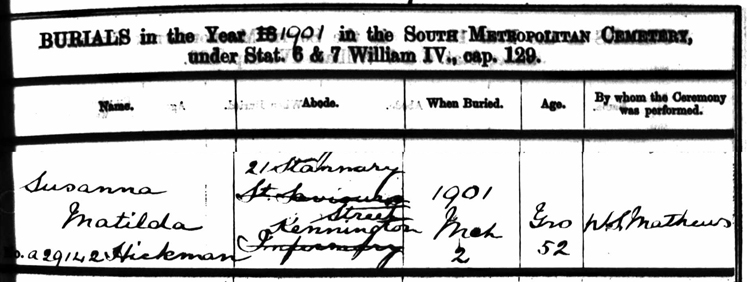 BURIALS in the Year 18 1901 in the SOUTH METROPOLITAN CEMETERY,
under Stat. 6 & 7 William IV., cap. 129.
Name. Abode. When Buried. Age. By whom the Ceremony was performed.
Susanna
Matilda
No. a29142 Hickman
21 Stannary
St. Saviours
Street
Kennington
Infirmary
1901
Mch
2
52
Mathews